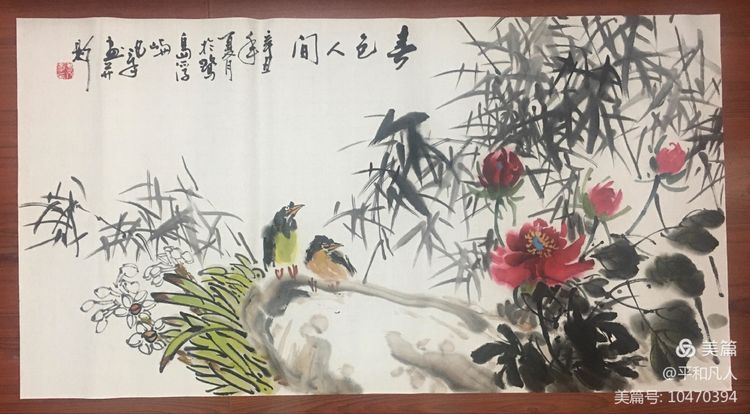 春色人间
辛丑
年
夏月
於鹭
岛
屿
画并
题
美篇
@平和凡人
美篇号: 10470394